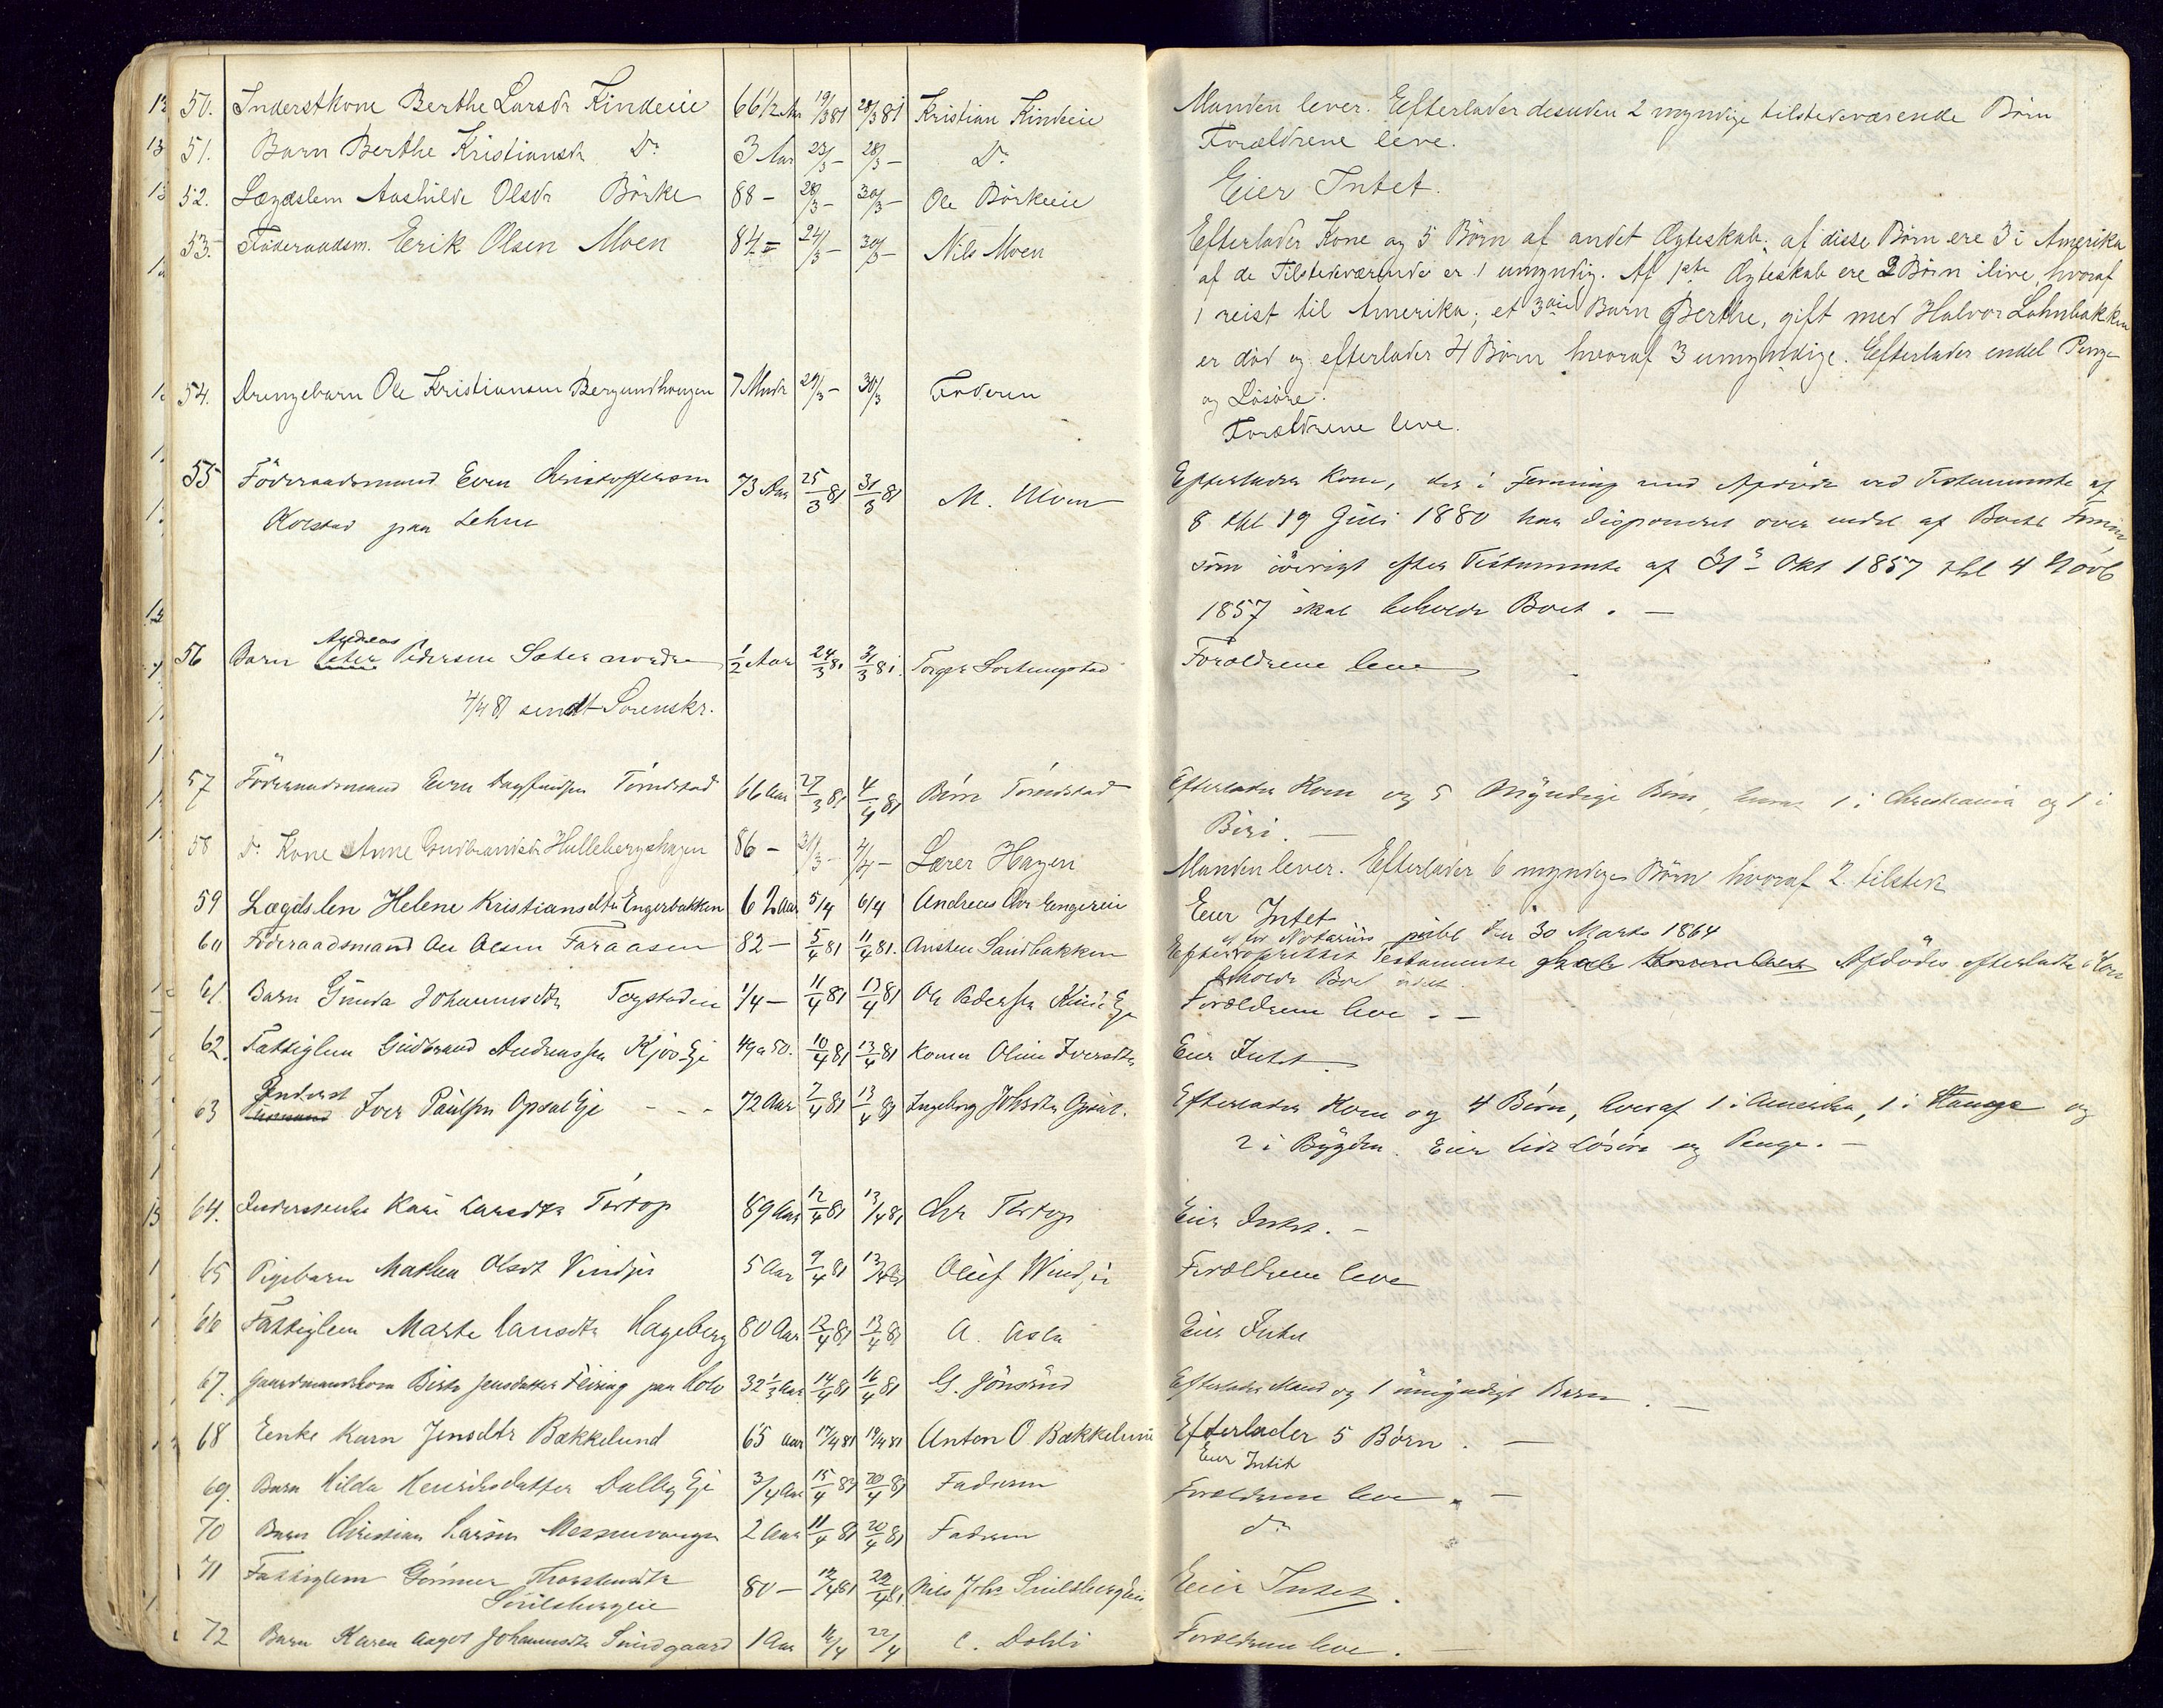 50. Inderstkone Berthe Larsdr Kindeie 66 1/2 Aar 19/3 81 28/3 81 Kristian Kindeie Manden lever. Efterlader desuden 2 myndige tilstedeværende Børn
51. Barn Berthe Kristiansdr Do 3 Aar 23/3 – 28/3 – Do Forældrene leve.
52. Lægdslem Aashilde Olsdr Börke 88 – 28/3 – 30/3 – Ole Börkeeie Eier Intet.
53. Föderaadsm. Erik Olsen Moen 84 – 24/3 – 30/3 – Nils Moen Efterlader Kone og 5 Børn af andet Ægteskab, af disse Børn ere 3 i Amerika
af de Tilstedeværende er 1 umyndig. Af 1ste Ægteskab ere 2 Børn ilive, hvoraf
1 reist til Amerika; et 3die Barn Berthe, gift med Halvor Lohnbakken
er död og efterlader 4 Børn hvoraf 3 umyndige. Efterlader endel Penge
og Lösöre.
54. Drengebarn Ole Kristiansen Bergundhaugen 7 Mndr 29/3 – 30/3 Faderen Forældrene leve.
55 Föderaadsmand Even Christoffersen 73 Aar 25/3 81 31/3 81 M. Ulven Efterlader Kone, der i Forening med Afdøde ved Testamente af
Kolstad paa Lehne 8 thl 19 Juli 1880 har disponeret over endel af Boets
som øvrigt efter Testamente af 31 Okt 1857 thl 4 Novb
1857 skal beholde Boet. –
Andreas
56 Barn Peter Pedersen Sater nordre 1/2 Aar 24/3 81 31/3 81. Torger Forældrene leve
4/4 81 sendt Sorenskr.
57 Föderaadsmand Even Tömdstad 66 Aar 27/3 81 4/4 81 Tömdstad Efterlader Kone og 5 Myndige Børn, hvoraf 1 i Christiania og 1 i
Biri. –
58 Do Kone Anne Gudbrandsdr Hullebergshagen 86 – 31/3 – 4/4 – Lærer Hagen Manden lever. Efterlader 6 myndige Børn hvoraf 2 tilstede
59 Lægdslen Helene Kristiansdtr Engerbakken 62 Aar 5/4 6/4 Andreas Chr Engereie Eier Intet
60 Föderaadsmand Ole Olsen Faraasen 82 – 5/4 81 11/4 81. Ansten Sandbakken
af for Notarius publ den 30 Marts 1864
Efter oprettet Testamente skal Afdødes efterladte Kone
beholde Boet
61. Barn Gunda Johannesdtr Torgstadeie 1/4 – 11/4 81 13/4 81 Ole Pedersen Kind Eje Forældrene leve. –
62. Fattiglem Gudbrand Andreassen Kjos Eje 49 a 50. 10/4 81 13/4 81 Konen Oline Iversdtr Eier Intet
Inderst
63 Iver Paulsen Opsal Eje – – – 72 Aar 7/4 81 13/4 81 Ingeborg Johsdtr Opsal. Efterlader Kone og 4 Børn, hvoraf 1 i Amerika, 1 i Stange og
2 i Bygden. Eier lidt Lösöre og Penge. –
64. Inderstenke Kari Larsdtr Törtop 89 Aar 12/4 81 13/4 81 Chr Törtop Eier Intet. –
65 Pigebarn Mathea Olsdt Vindju 5 Aar 9/4 81 13/4 81 Oluf Windju Forældrene leve
66 Fattiglem Marte Hansdtr Hageberg 80 Aar 12/4 81 13/4 81 A. Asla Eier Intet
67. Gaardmandskone Jensdatter Feiring paa Kolo 32 1/3 Aar 14/4 81 16/4 81 G. Jönsrud Efterlader Mand og 1 umyndigt Barn. –
68 Enke Karn Jensdtr Bækkelund 65 Aar 17/4 81 19/4 81 Anton O. Bækkelund Efterlader 5 Børn. –
Eier Intet
69. Barn Hilda Henriksdatter Dalby Eje 3/4 Aar 15/4 81 20/4 81 Faderen Forældrene leve. –
70 Barn Christian Larsen Messenvangen 2 Aar 11/4 81 20/4 81 Faderen do
71 Fattiglem Gunner Thorstensdtr 80 – 19/4 81 22/4 81. Nils Johs Snilsbergeie Eier Intet.
Snilsbergeie
72 Barn Karen Aagot Johannesdtr Sundgaard 1 Aar 16/4 22/4 C. Dohli Forældrene leve. –